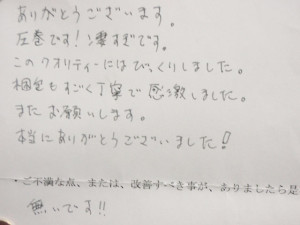 ありがとうございます。
圧巻です!凄すぎです。
このクオリティーにはびっくりしました。
梱包もすごく丁寧で感激しました。
またお願いします。
本当にありがとうございました!
・ご不満な点、または、改善すべき事が、ありましたら是
無いです!!